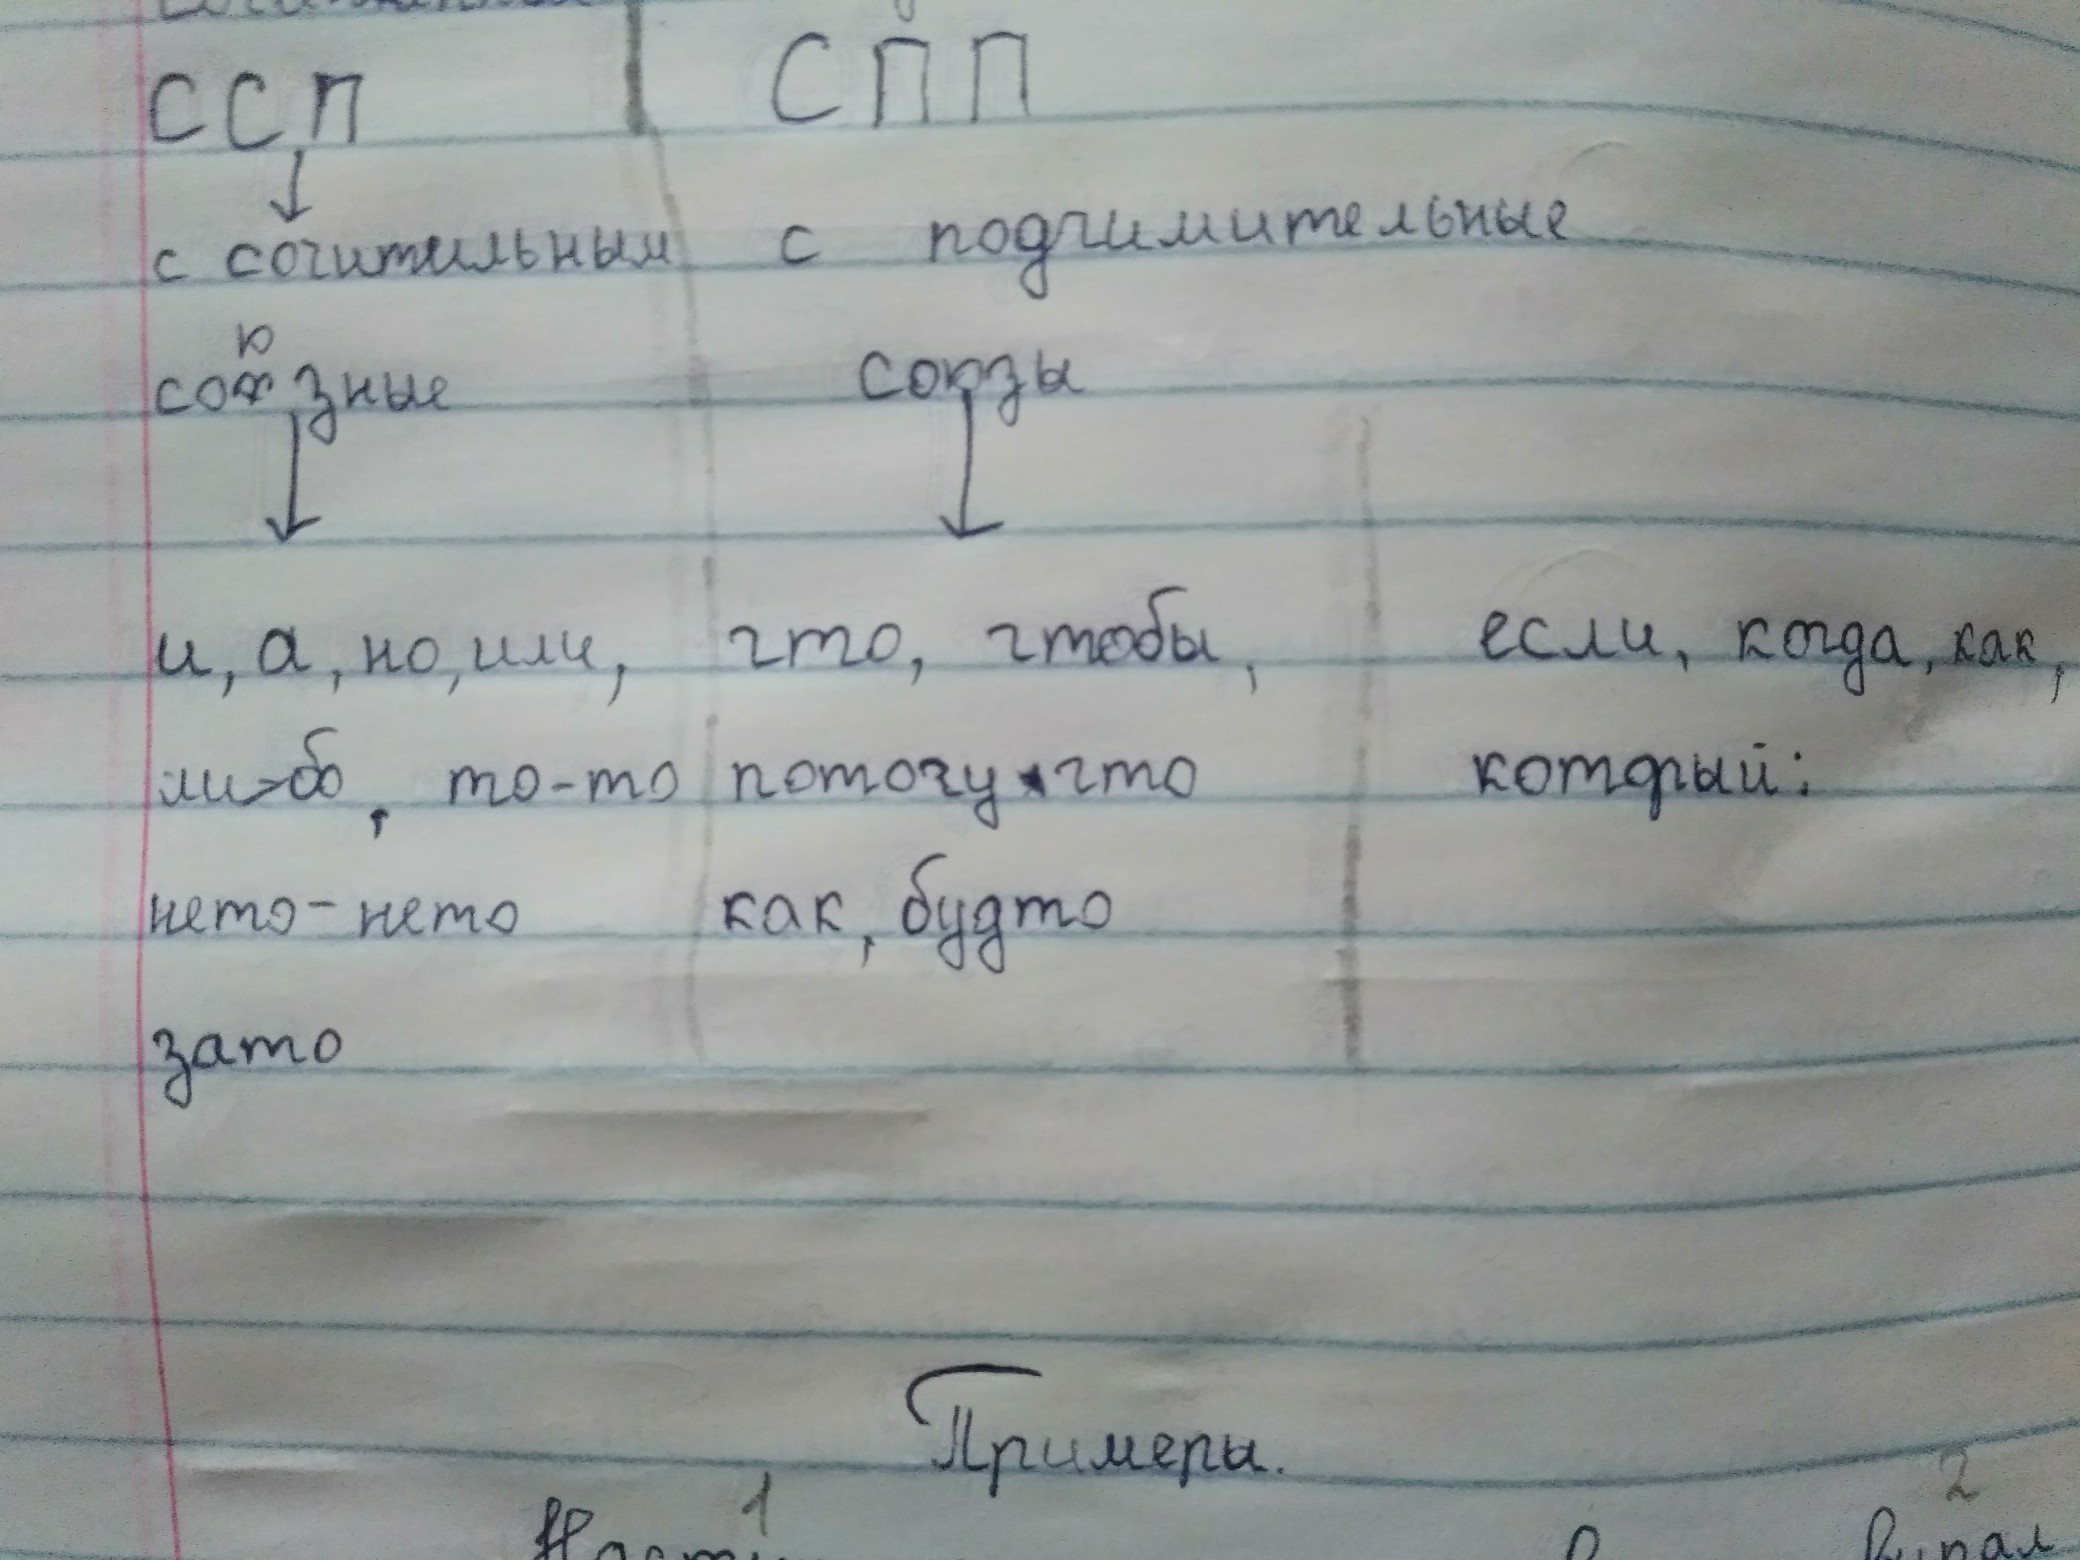 ССП СПП
с сочительным с подчимительные
ю
союзные союзы
и, а, но, или, что, чтобы, если, когда, как,
либо, то-то поточу что который:
нето-нето как, будто
зато
Примеры.
1 2